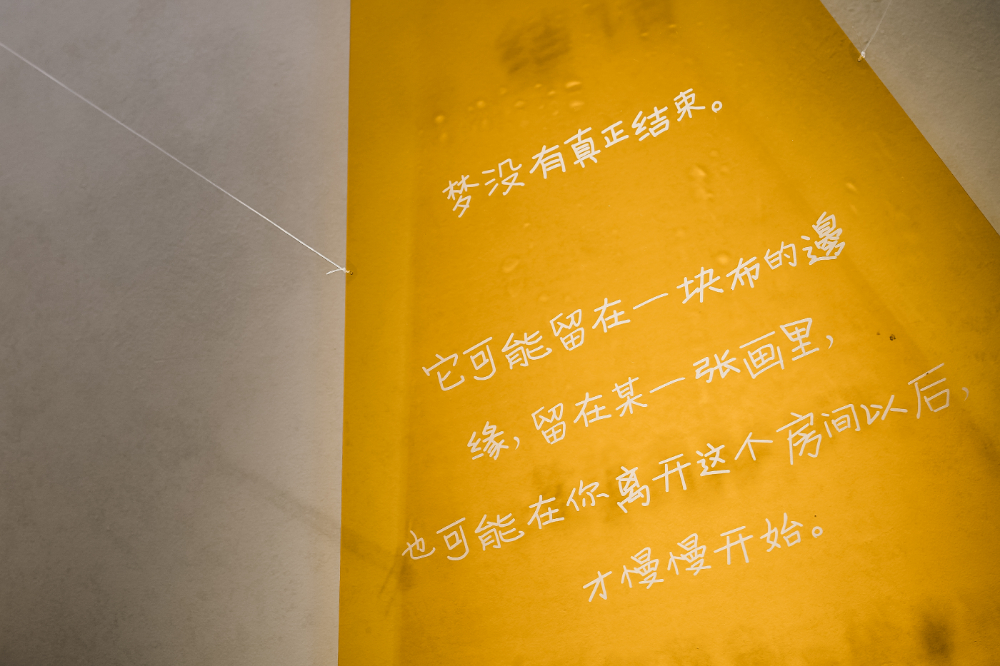 梦没有真正结束。
它可能留在一块布的邊
缘,留在某一张画里,
也可能在你离开这个房间以后,
才慢慢开始。